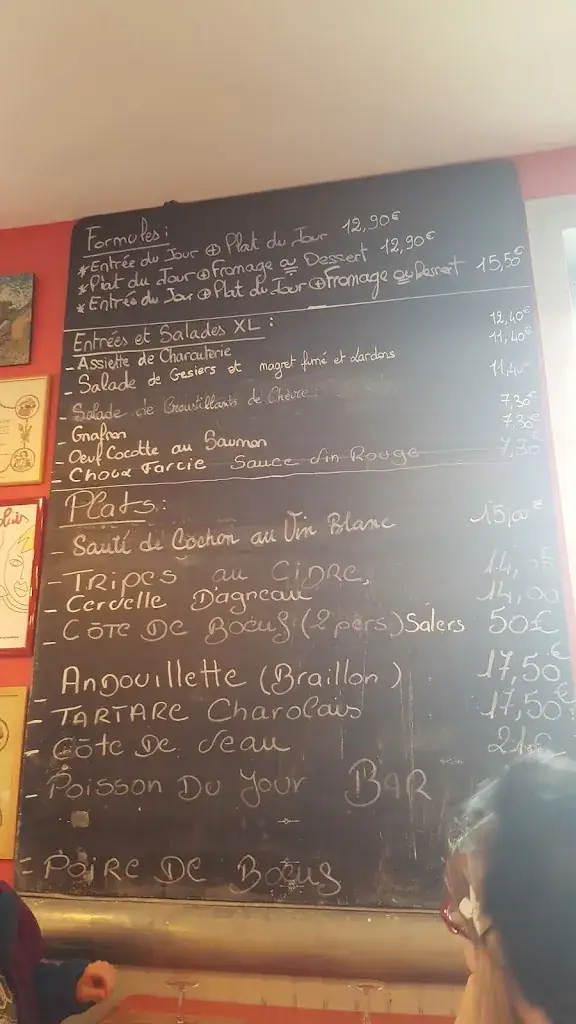 Formules:
* Entrée du Jour ⊕ Plat du Jour 12,90€
* Plat du Jour ⊕ Fromage ou Dessert 12,90€
* Entrée du Jour ⊕ Plat du Jour ⊕ Fromage ou Dessert 15,50€
Entrées et Salades XL :
- Assiette de Charcuterie 12,40€
- Salade de Gesiers et magret fumé et Lardons 11,40€
- Salade de Croustillants de Chèvre: 11,40€
- Gnafron 7,30€
- Oeuf Cocotte au Saumon 7,30€
- Choux Farcie Sauce Vin Rouge 7,30
Plats:
- Sauté de Cochon au Vin Blanc 15,00€
- TRIPES au CIDRE, 14,
- Cervelle D'agneau 14,00
- CÔTE DE Boeuf (2 pers.) Salers 50€
- Andouillette (Braillon) 17,50€
- TARTARE Charolais 17,50€
- Côte De Veau 21€
- Poisson Du Jour BAR
- POIRE DE Boeuf